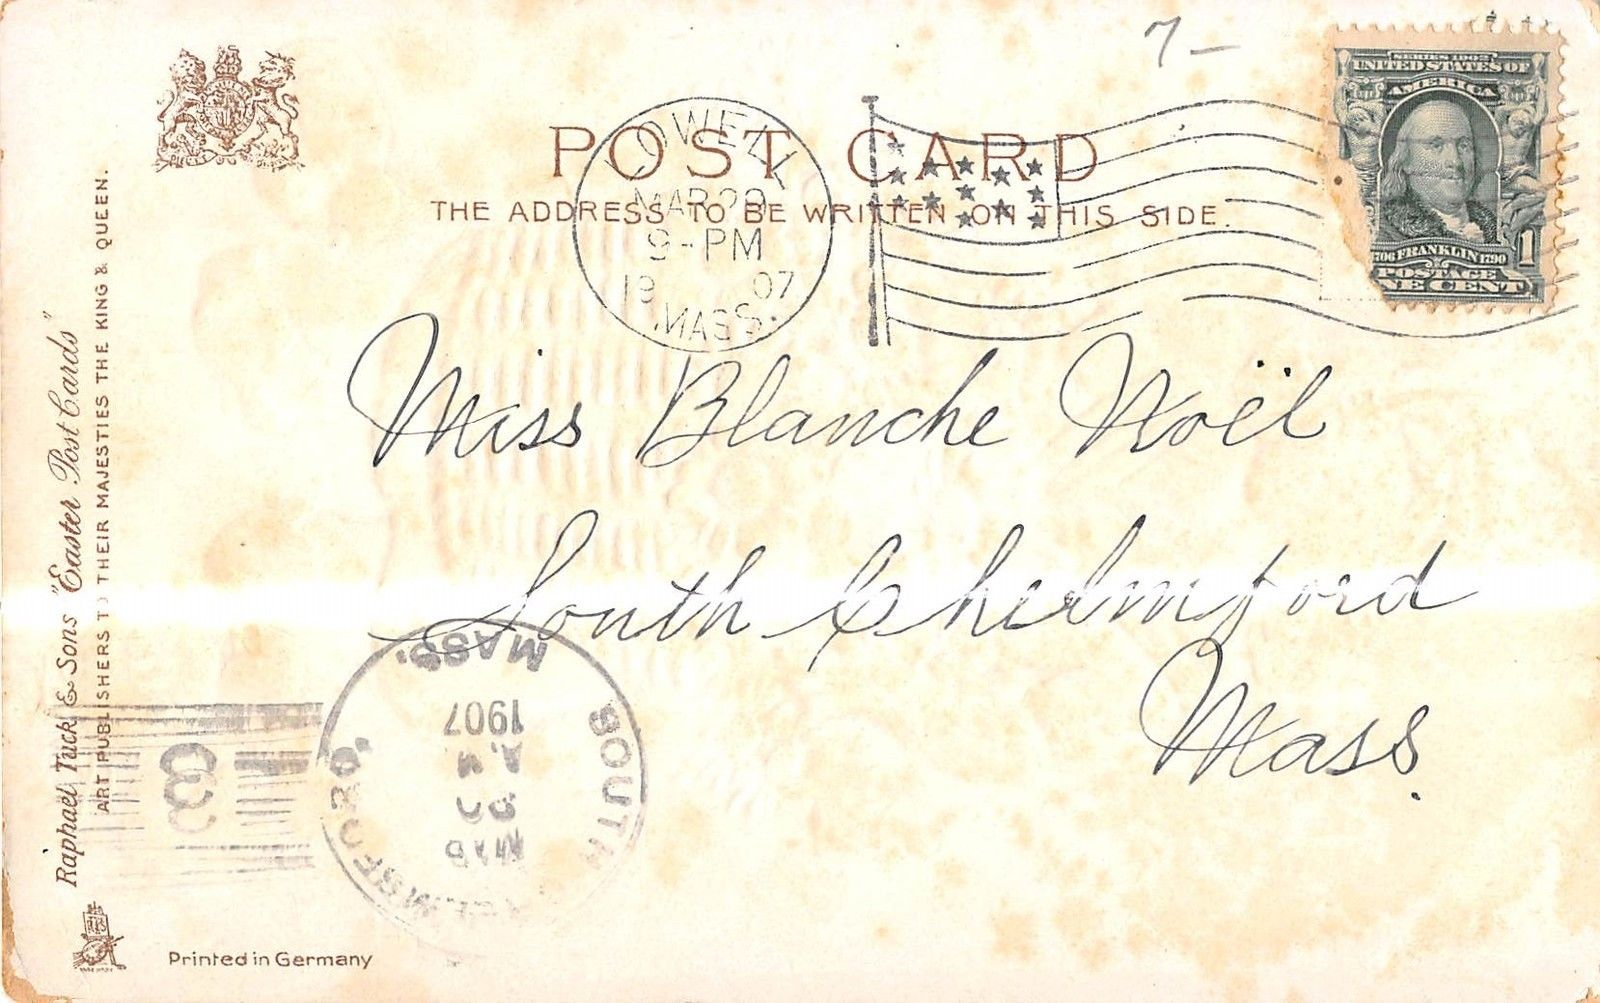 7-
SERIES 1902
UNITED STATES OF
AMERICA
FRANKLIN 1790
POSTAGE
NE CENT
1
POST CARD
THE ADDRESS TO BE WRITTEN ON THIS SIDE.
LOWELL
MAR 29
9-PM
1907
MASS.
Miss Blanche Noël
South Chelmford
Mass.
Raphael Tuck & Sons "Easter Post Cards"
ART PUBLISHERS TO THEIR MAJESTIES THE KING & QUEEN.
SOUTH CHELMSFORD,
MAR
30
A.M
1907
MASS.
Printed in Germany